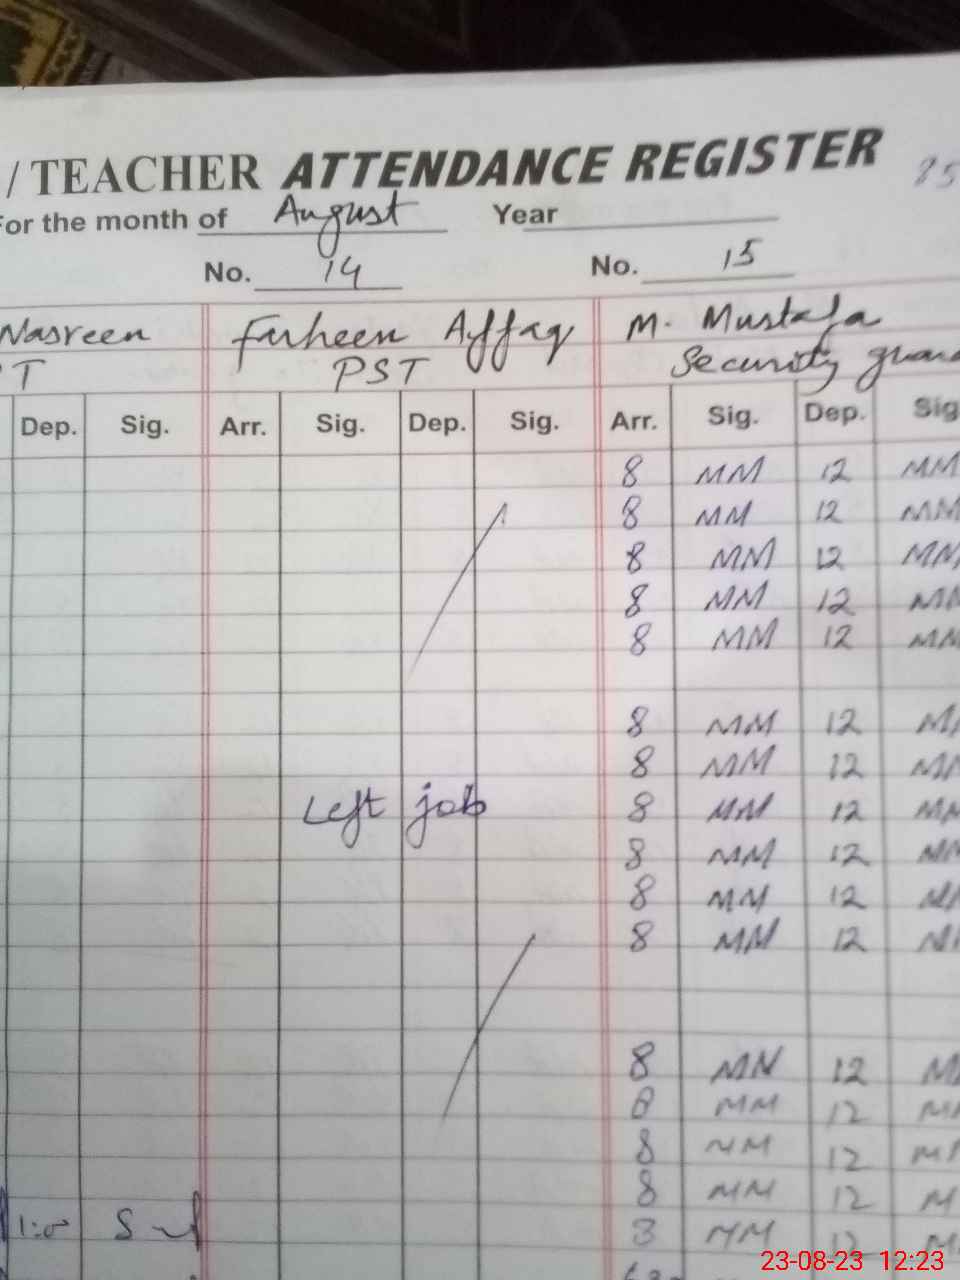 / TEACHER ATTENDANCE REGISTER
For the month of August Year
No. 14 No. 15
Nasreen Farheen Affaq M. Mustafa
PST Security
Dep. Sig. Arr. Sig. Dep. Sig. Arr. Sig. Dep. Sig
8 MM 12 MM
8 MM 12 MM
8 MM 12 MM
8 MM 12 MM
8 MM 12 MM
8 MM 12
8 MM 12
Left job 8 MM 12
8 MM 12
8 MM 12
8 MM 12
8 MM 12
8 MM 12
8 MM 12
8 MM 12
MM 12
23-08-23 12:23